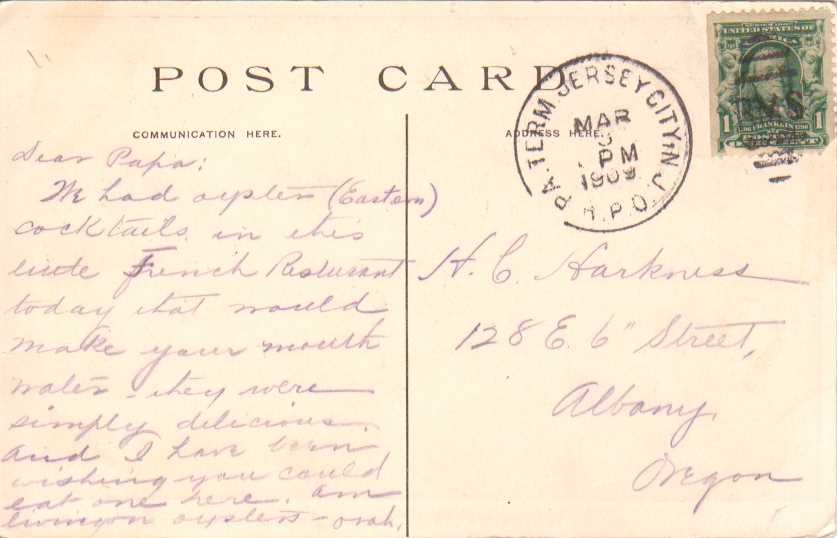 POST CARD
COMMUNICATION HERE.
ADDRESS HERE.
PA. TERM. JERSEY CITY N.J.
MAR
PM
1909
R.P.O.
UNITED STATES OF
AMERICA
R.M.S
1 FRANKLIN 1
Dear Papa:
We had oysters (Eastern)
cocktails in this
little French Resturant
today that would
make your mouth
water - they were
simply delicious.
and I have been
wishing you could
eat one here. am
living on oysters -
H. C. Harkness
128 E. 6" Street,
Albany,
Oregon